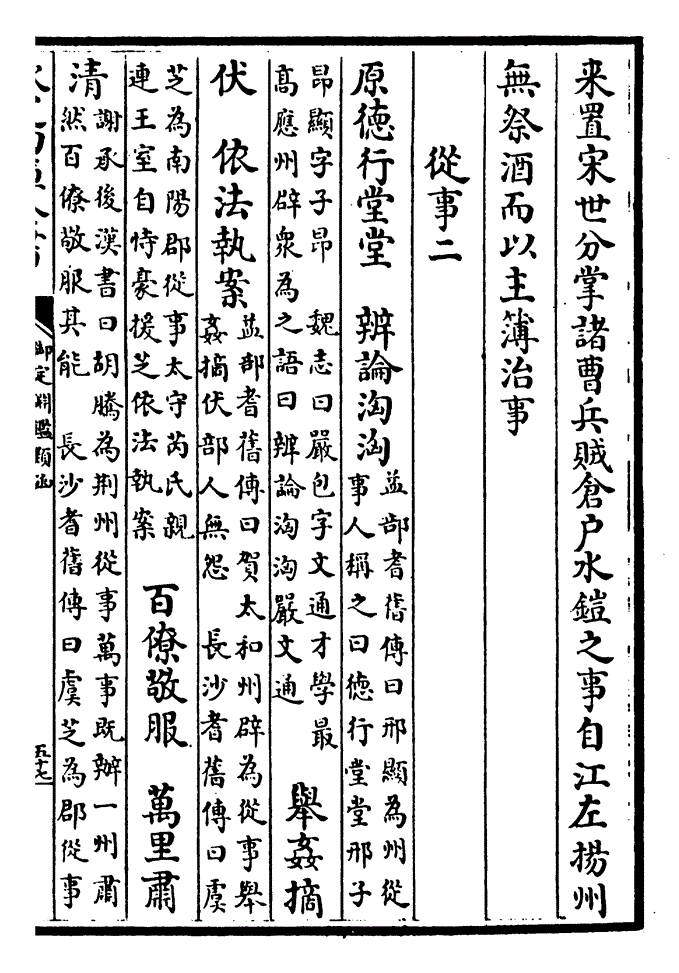 来置宋世分掌諸曹兵賊倉户水鎧之事自江左揚州
無祭酒而以主簿治事
從事二
原德行堂堂　辨論洶洶
益部耆舊傳曰邢顯為州從
事人稱之曰德行堂堂邢子
昂顯字子昂　魏志曰嚴包字文通才學最
高應州辟衆為之語曰辨論洶洶嚴文通
舉姦摘
伏　依法執案
益部耆舊傳曰賀太和州辟為從事舉
姦摘伏部人無怨　長沙耆舊傳曰虞
芝為南陽郡從事太守芮氏親
連王室自恃豪援芝依法執案
百僚敬服　萬里肅
清
謝承後漢書曰胡騰為荆州從事萬事既辦一州肅
然百僚敬服其能　長沙耆舊傳曰虞芝為郡從事
御定淵鑑類函
五十七